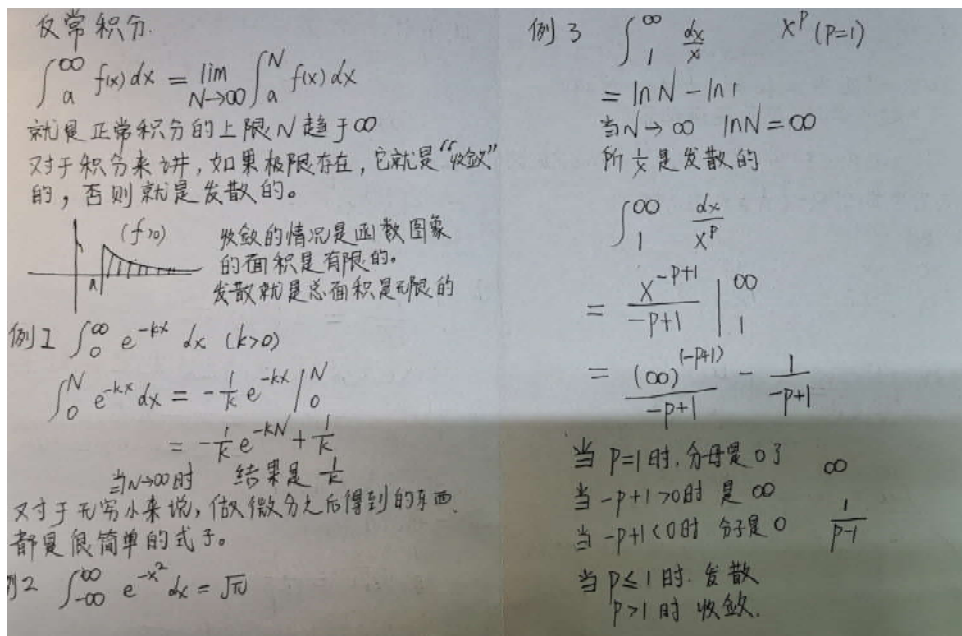 反常积分.
∫_a^∞ f(x) dx = lim_{N→∞} ∫_a^N f(x) dx
就是正常积分的上限N趋于∞
对于积分来讲,如果极限存在,它就是“收敛”
的,否则就是发散的。
(f>0)
a
收敛的情况是函数图象
的面积是有限的。
发散就是总面积是无限的
例1 ∫_0^∞ e^{-kx} dx (k>0)
∫_0^N e^{-kx} dx = -1/k e^{-kx} |_0^N
= -1/k e^{-kN} + 1/k
当N→∞时 结果是 1/k
对于无穷小来说,做微分之后得到的东西
都是很简单的式子。
例2 ∫_{-∞}^{∞} e^{-x^2} dx = √π
例3 ∫_1^∞ dx/x x^p (p=1)
= ln N - ln 1
当N→∞ ln N = ∞
所以是发散的
∫_1^∞ dx/x^p
= x^{-p+1}/(-p+1) |_1^∞
= (∞)^{(-p+1)}/(-p+1) - 1/(-p+1)
当 p=1时,分母是0了 ∞
当 -p+1>0时 是 ∞
当 -p+1<0时 分子是0 1/(p-1)
当 p≤1时.发散
p>1时 收敛.